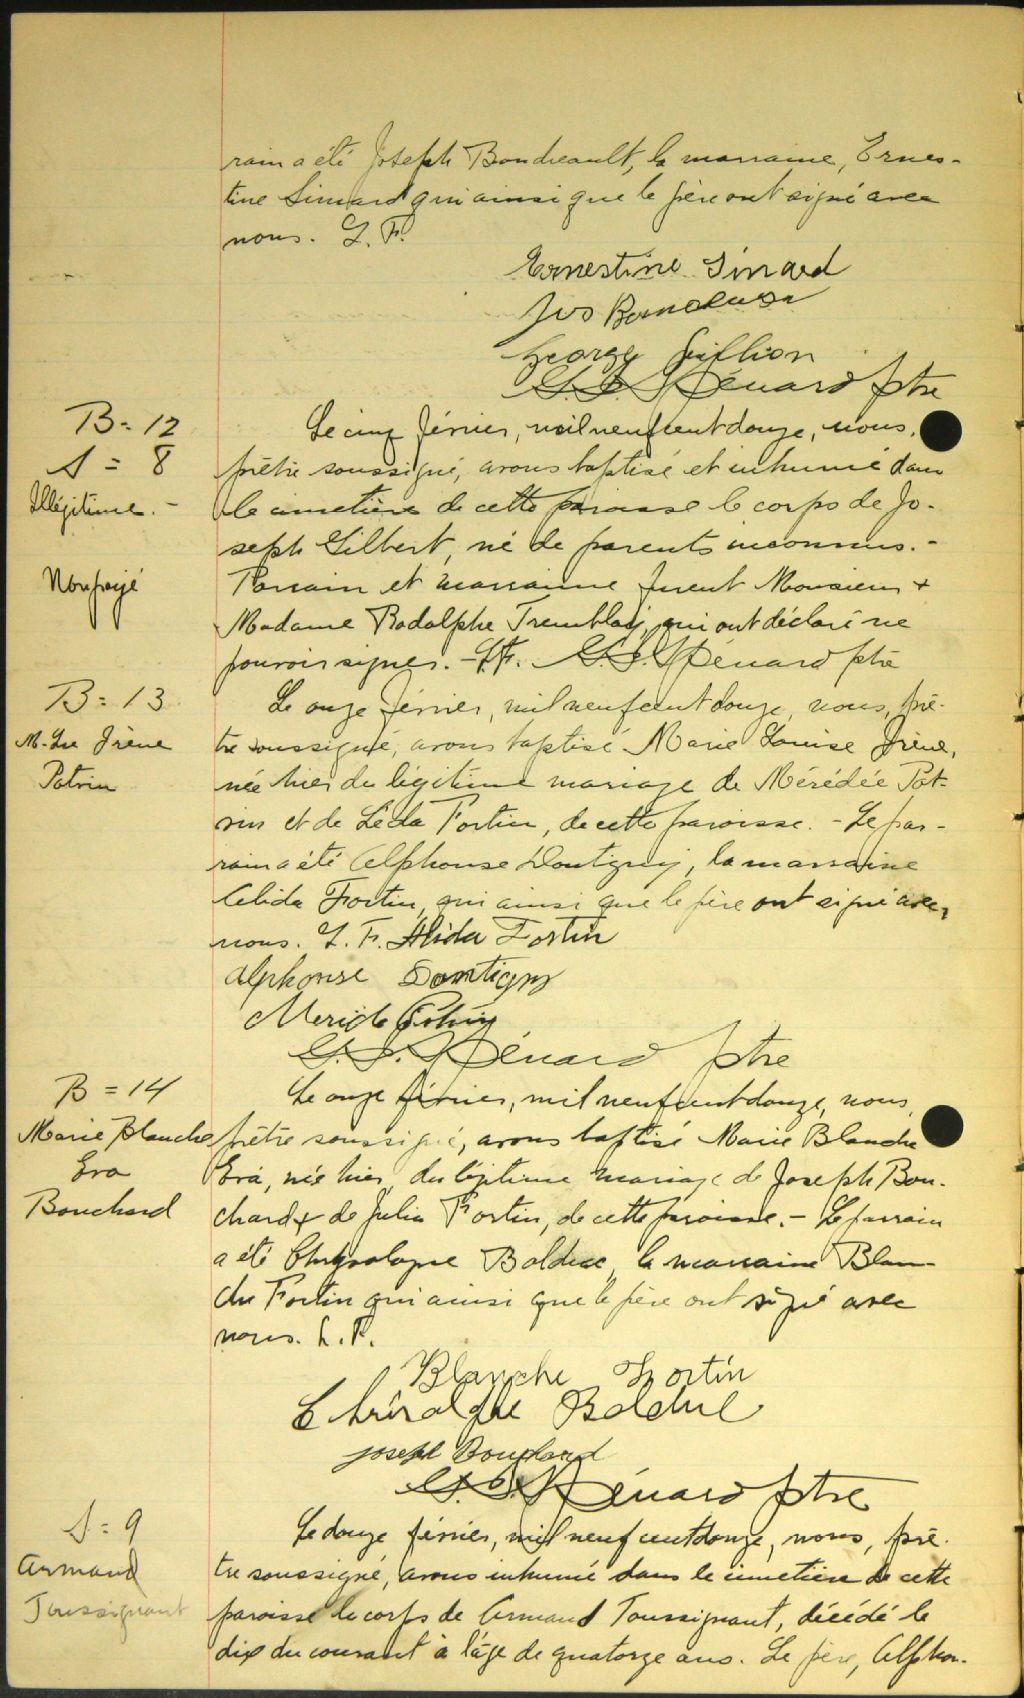 rain a été Joseph Boudreault, la marraine, Ernes-
tine Simard qui ainsi que le père ont signé avec
nous. L. F.
Ernestine Simard
Jos
George
Ptre
B = 12
S = 8
Illégitime. -
Non payé
Le cinq février, mil neuf cent douze, nous,
prêtre soussigné, avons baptisé et inhumé dans
le cimetière de cette paroisse le corps de Jo-
seph Gilbert, né de parents inconnus. -
Parrain et marraine furent Monsieur +
Madame Rodolphe Tremblay, qui ont déclaré ne
pouvoir signer. - L. F. Ptre
B = 13
M. Lse Irène
Potvin
Le onze février, mil neuf cent douze, nous, prê-
tre soussigné, avons baptisé Marie Louise Irène,
née hier du légitime mariage de Mérédée Pot-
vin et de Léda Fortin, de cette paroisse. - Le par-
rain a été Alphonse Dontigny, la marraine
Alida Fortin, qui ainsi que le père ont signé avec
nous. L. F. Alida Fortin
Alphonse Dontigny
Ptre
B = 14
Marie Blanche
Eva
Bouchard
Le onze février, mil neuf cent douze, nous,
prêtre soussigné, avons baptisé Marie Blanche
Eva, née hier, du légitime mariage de Joseph Bou-
chard & de Julia Fortin, de cette paroisse. - Le parrain
a été Chrysologue Bolduc, la marraine Blan-
che Fortin qui ainsi que le père ont signé avec
nous. L. F.
Blanche Fortin
Bolduc
Joseph Bouchard
Ptre
S = 9
Armand
Toussignant
Le douze février, mil neuf cent douze, nous, prê-
tre soussigné, avons inhumé dans le cimetière de cette
paroisse le corps de Armand Toussignant, décédé le
dix du courant à l'âge de quatorze ans. Le père, Alphon-